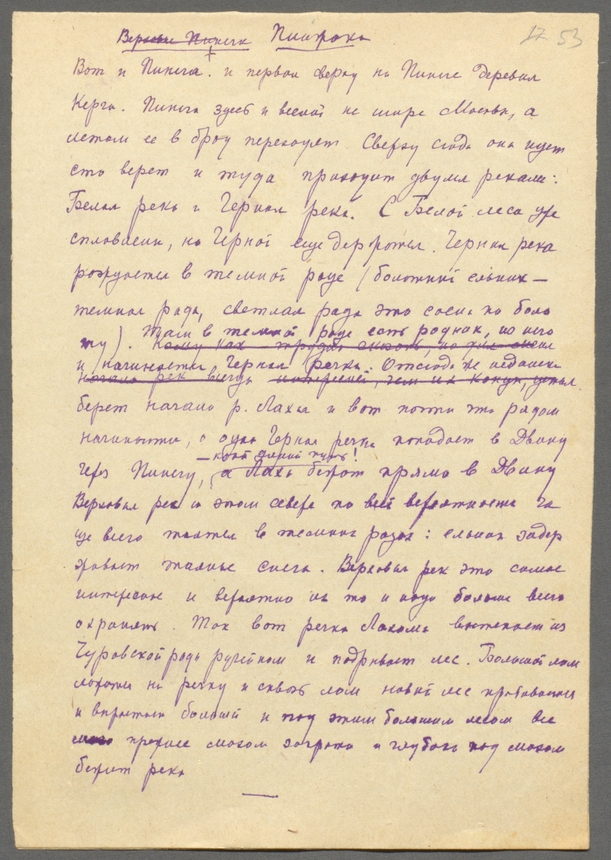 Верховье Пинеги Пинега 17 53
Вот и Пинега. и первая сверху на Пинеге деревня
Керга. Пинега здесь и весной не шире Москвы, а
летом ее в брод переходят. Сверху сюда она идет
сто верст и туда приходит двумя реками:
Белая река и Черная река. С Белой леса уже
сплавлены, на Черной еще держатся. Черная река
рождается в темной раде (болотный ельник —
темная рада, светлая рада это сосна по боло
ту). Там в темной раде есть родник, из него
и начинается Черная речка. Отсюда же недалеко
начало рек всегда интересней, чем их конец,
берет начало р. Лахома и вот почти что рядом
начинаются, а одна Черная речка попадает в Двину
— какой дальний путь!
через Пинегу, а Лахома бежит прямо в Двину
Верховья рек на этом севере по всей вероятности ча
ще всего таятся в темных радах: ельник задер
живает таяние снега. Верховья рек это самое
интересное и вероятно их то и надо больше всего
охранять. Так вот речка Лахома вытекает из
Чуровской рады ручейком и подрывает лес. Большой лом
ложится на речку и сквозь лом новый лес пробивается
и вырастает большой и под этим большим лесом все
прежнее мохом заросло и глубоко под мохом
бежит река